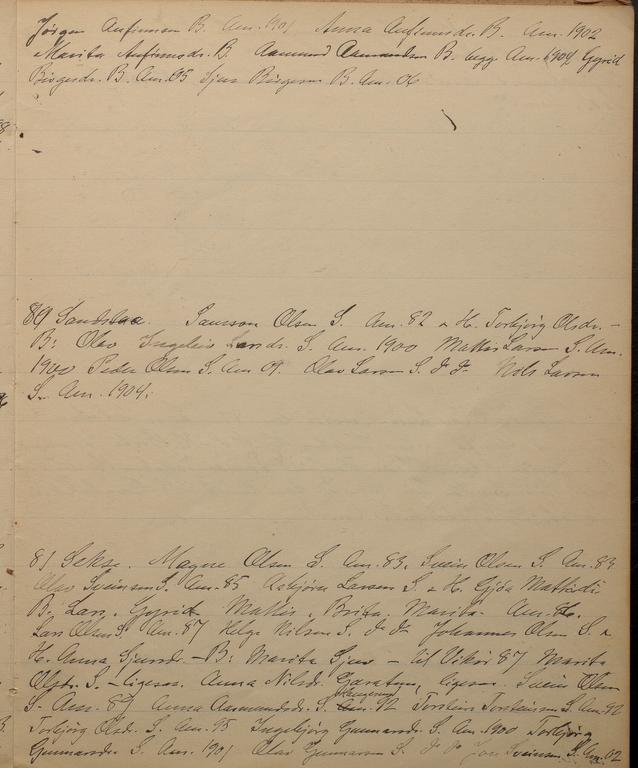 Jørgen Anfinnson B. Am. 1901 Anna Anfinnsdr. B. Am. 1902
Marita Anfinnsdr. B. Aamund Aamundsen B. bygg. Am. 1904 Gyrid
Birgesdr. B. Am. 05 Sjur Birgeson B. Am. 06
89 Samson Olsen S. Am. 82 & H. Torbjørg Olsdr. -
B: Olav Ingeleiv Larsdr. S. Am. 1900 Mattis Larsen S. Am.
1900 Peder Olsen S. Am 09. Olav Larsen S. d. d. Nols Larsen
S. Am. 1904.
81 Sekse. Magne Olsen S. Am. 83, Svein Olsen S. Am. 83
Olav Sveinsen S. Am. 85 Asbjørn Larsen S. & H. Gjøa
B. Lars. Gyrid Mattis, Brita. Marita. Am.
Lars Olsen S. Am. 87 Helge Nilsen S. d. d. Johannes Olsen S. &
H. Anna Sjursdr. - B: Marita Sjur - til Vikør 87 Marita
Olsdr. S. - ligesaa. Anna Nilsdr. ligesaa. Svein Olsen
S. Am. 87 Anna Aamundsdr. S. 92 Torstein Torsteinsen S. Am. 92
Torbjørg Olsdr. S. Am. 95 Ingebjørg Gunnarsdr. S. Am. 1900 Torbjørg
Gunnarsdr. S. Am. 1901 Olav Gunnarson S. d. d. Jon Sveinsen S. Am. 02